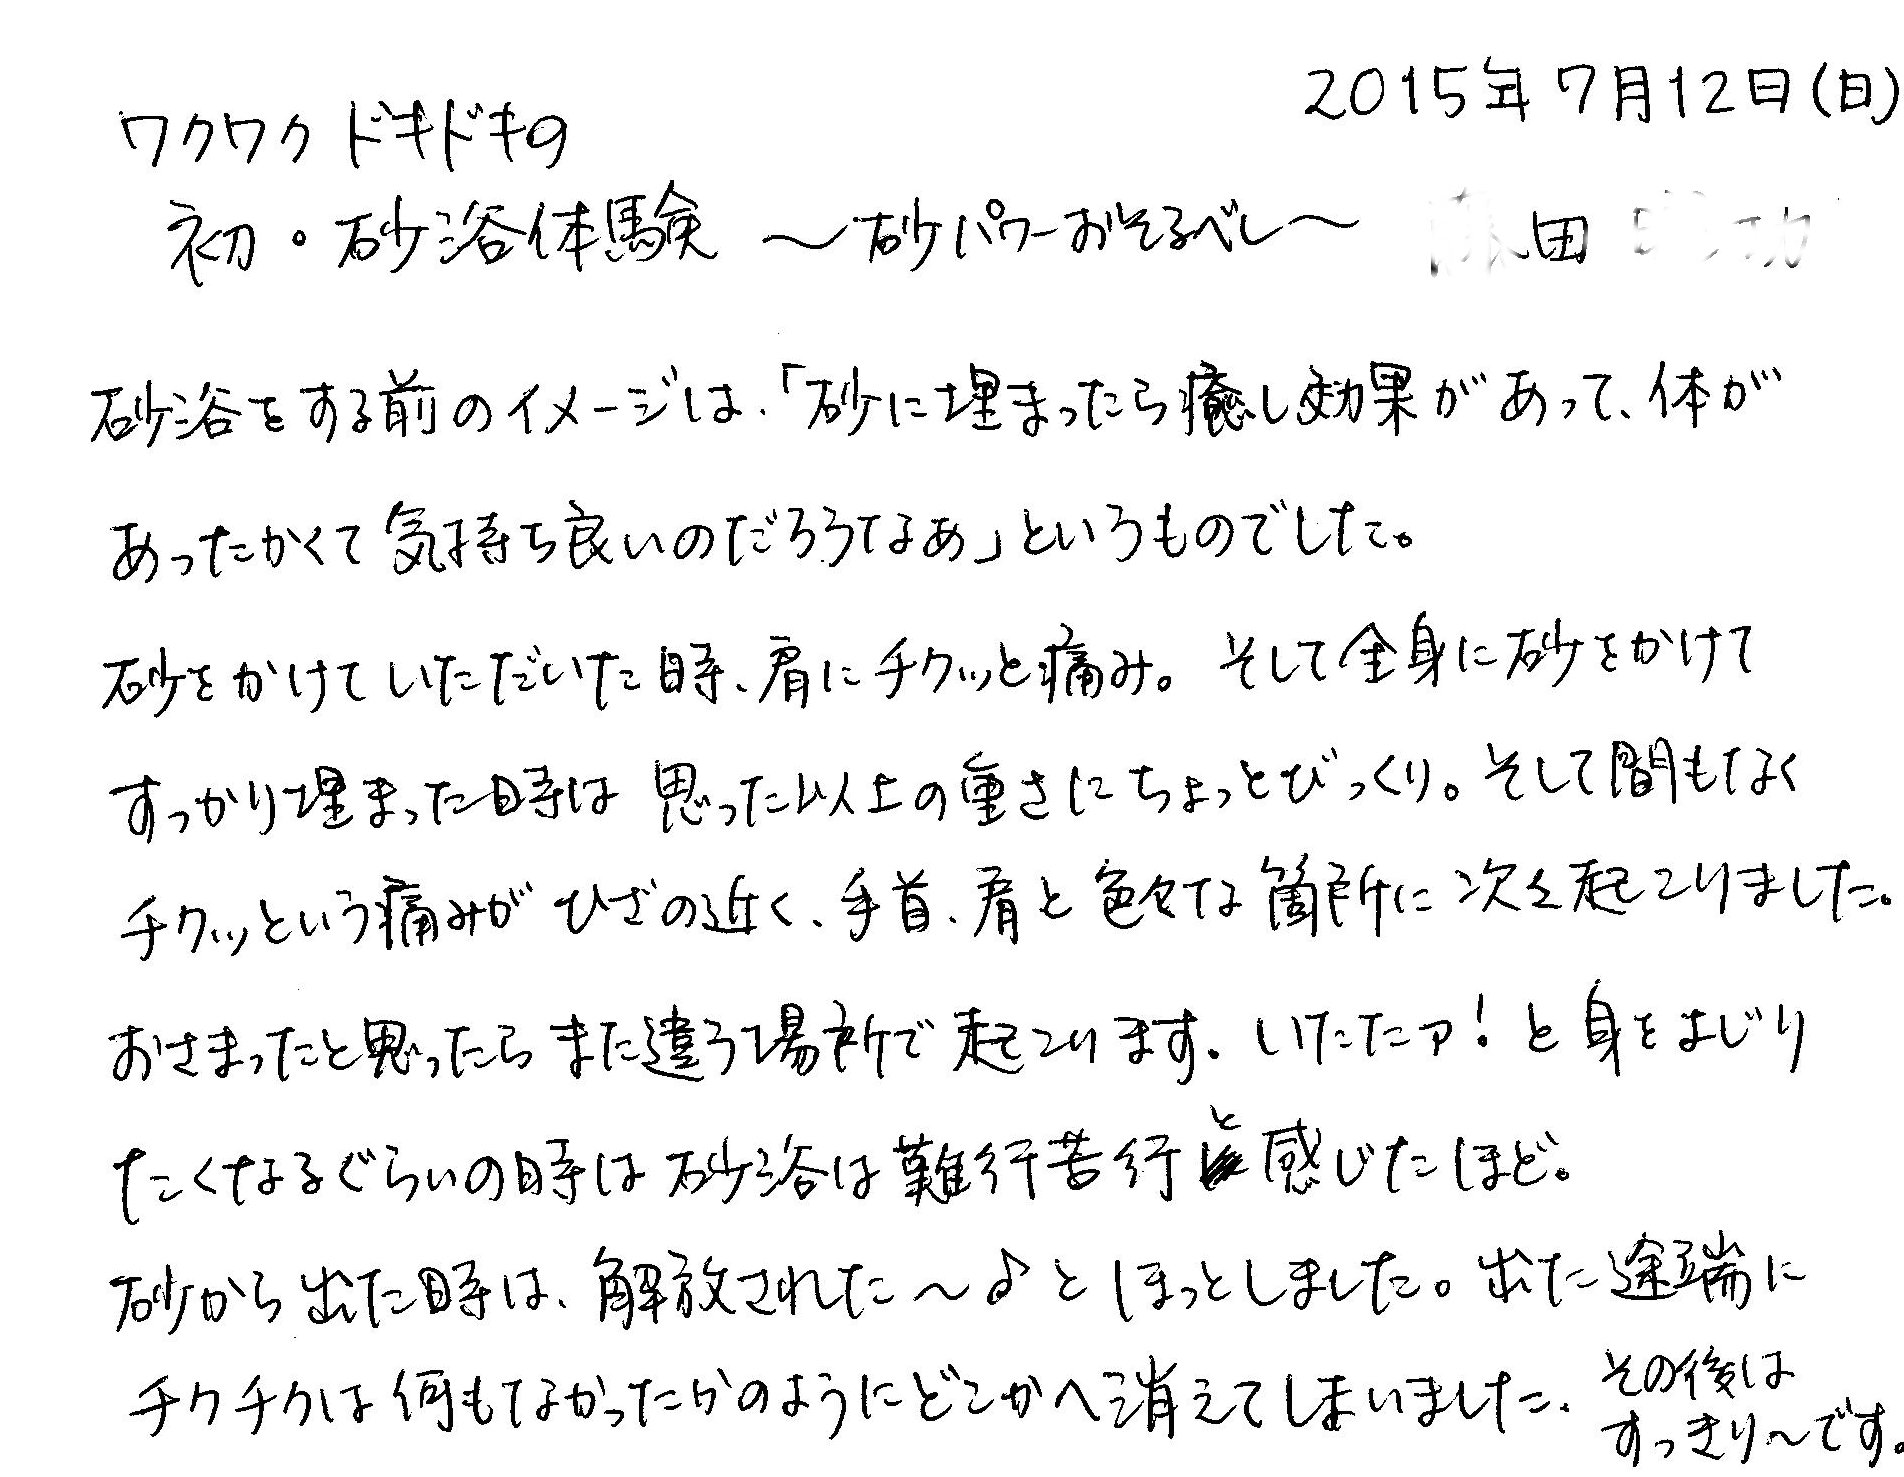 2015年7月12日(日)
ワクワクドキドキの
初・砂浴体験 〜砂パワーおそるべし〜 田
砂浴をする前のイメージは、「砂に埋まったら癒し効果があって、体が
あったかくて気持ち良いのだろうなぁ」というものでした。
砂をかけていただいた時、肩にチクッと痛み。そして全身に砂をかけて
すっかり埋まった時は思った以上の重さにちょっとびっくり。そして間もなく
チクッという痛みがひざの近く、手首、肩と色々な箇所に次々起こりました。
おさまったと思ったらまた違う場所で起こります。いたたァ!と身をよじり
たくなるぐらいの時は砂浴は難行苦行と感じたほど。
砂から出た時は、解放された〜♪とほっとしました。出た途端に
チクチクは何もなかったかのようにどこかへ消えてしまいました。その後は
すっきり〜です。